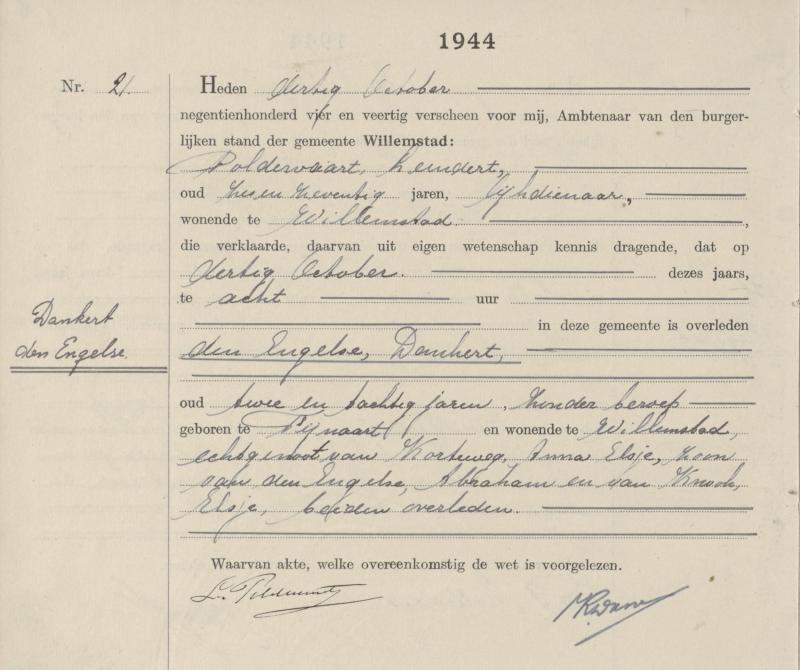 1944
Nr. 21.
Heden dertig October
negentienhonderd vier en veertig verscheen voor mij, Ambtenaar van den burger-
lijken stand der gemeente Willemstad:
Poldervaart, Leendert,
oud zes en zeventig jaren, lijkdienaar,
wonende te Willemstad,
die verklaarde, daarvan uit eigen wetenschap kennis dragende, dat op
dertig October. dezes jaars,
te acht uur
in deze gemeente is overleden
Dankert
den Engelse.
den Engelse, Dankert,
oud twee en tachtig jaren, zonder beroep
geboren te Fijnaart en wonende te Willemstad,
echtgenoot van Korteweg, Anna Elsje, zoon
van den Engelse, Abraham en van Knook,
Elsje, beiden overleden.
Waarvan akte, welke overeenkomstig de wet is voorgelezen.